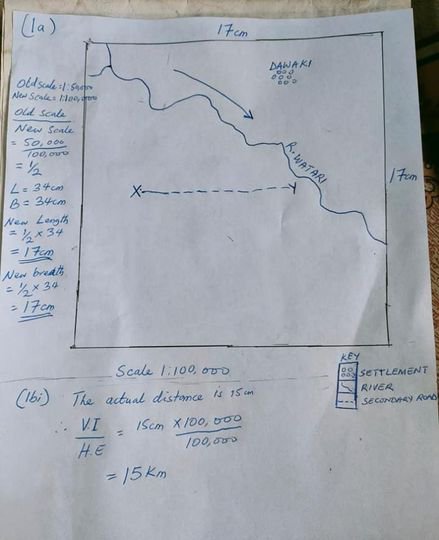 (1a)
17cm
DAWAKI
Old scale = 1:50,000
New Scale = 1:100,000
Old scale
New Scale
= 50,000
100,000
= 1/2
L = 34cm
B = 34cm
New Length
= 1/2 x 34
= 17cm
New breath
= 1/2 x 34
= 17cm
R. WATARI
X
Y
17cm
Scale 1:100,000
KEY
SETTLEMENT
RIVER
SECONDARY ROAD
(1bi) The actual distance is 15cm
∴ V.I = 15cm x100,000
H.E 100,000
= 15Km